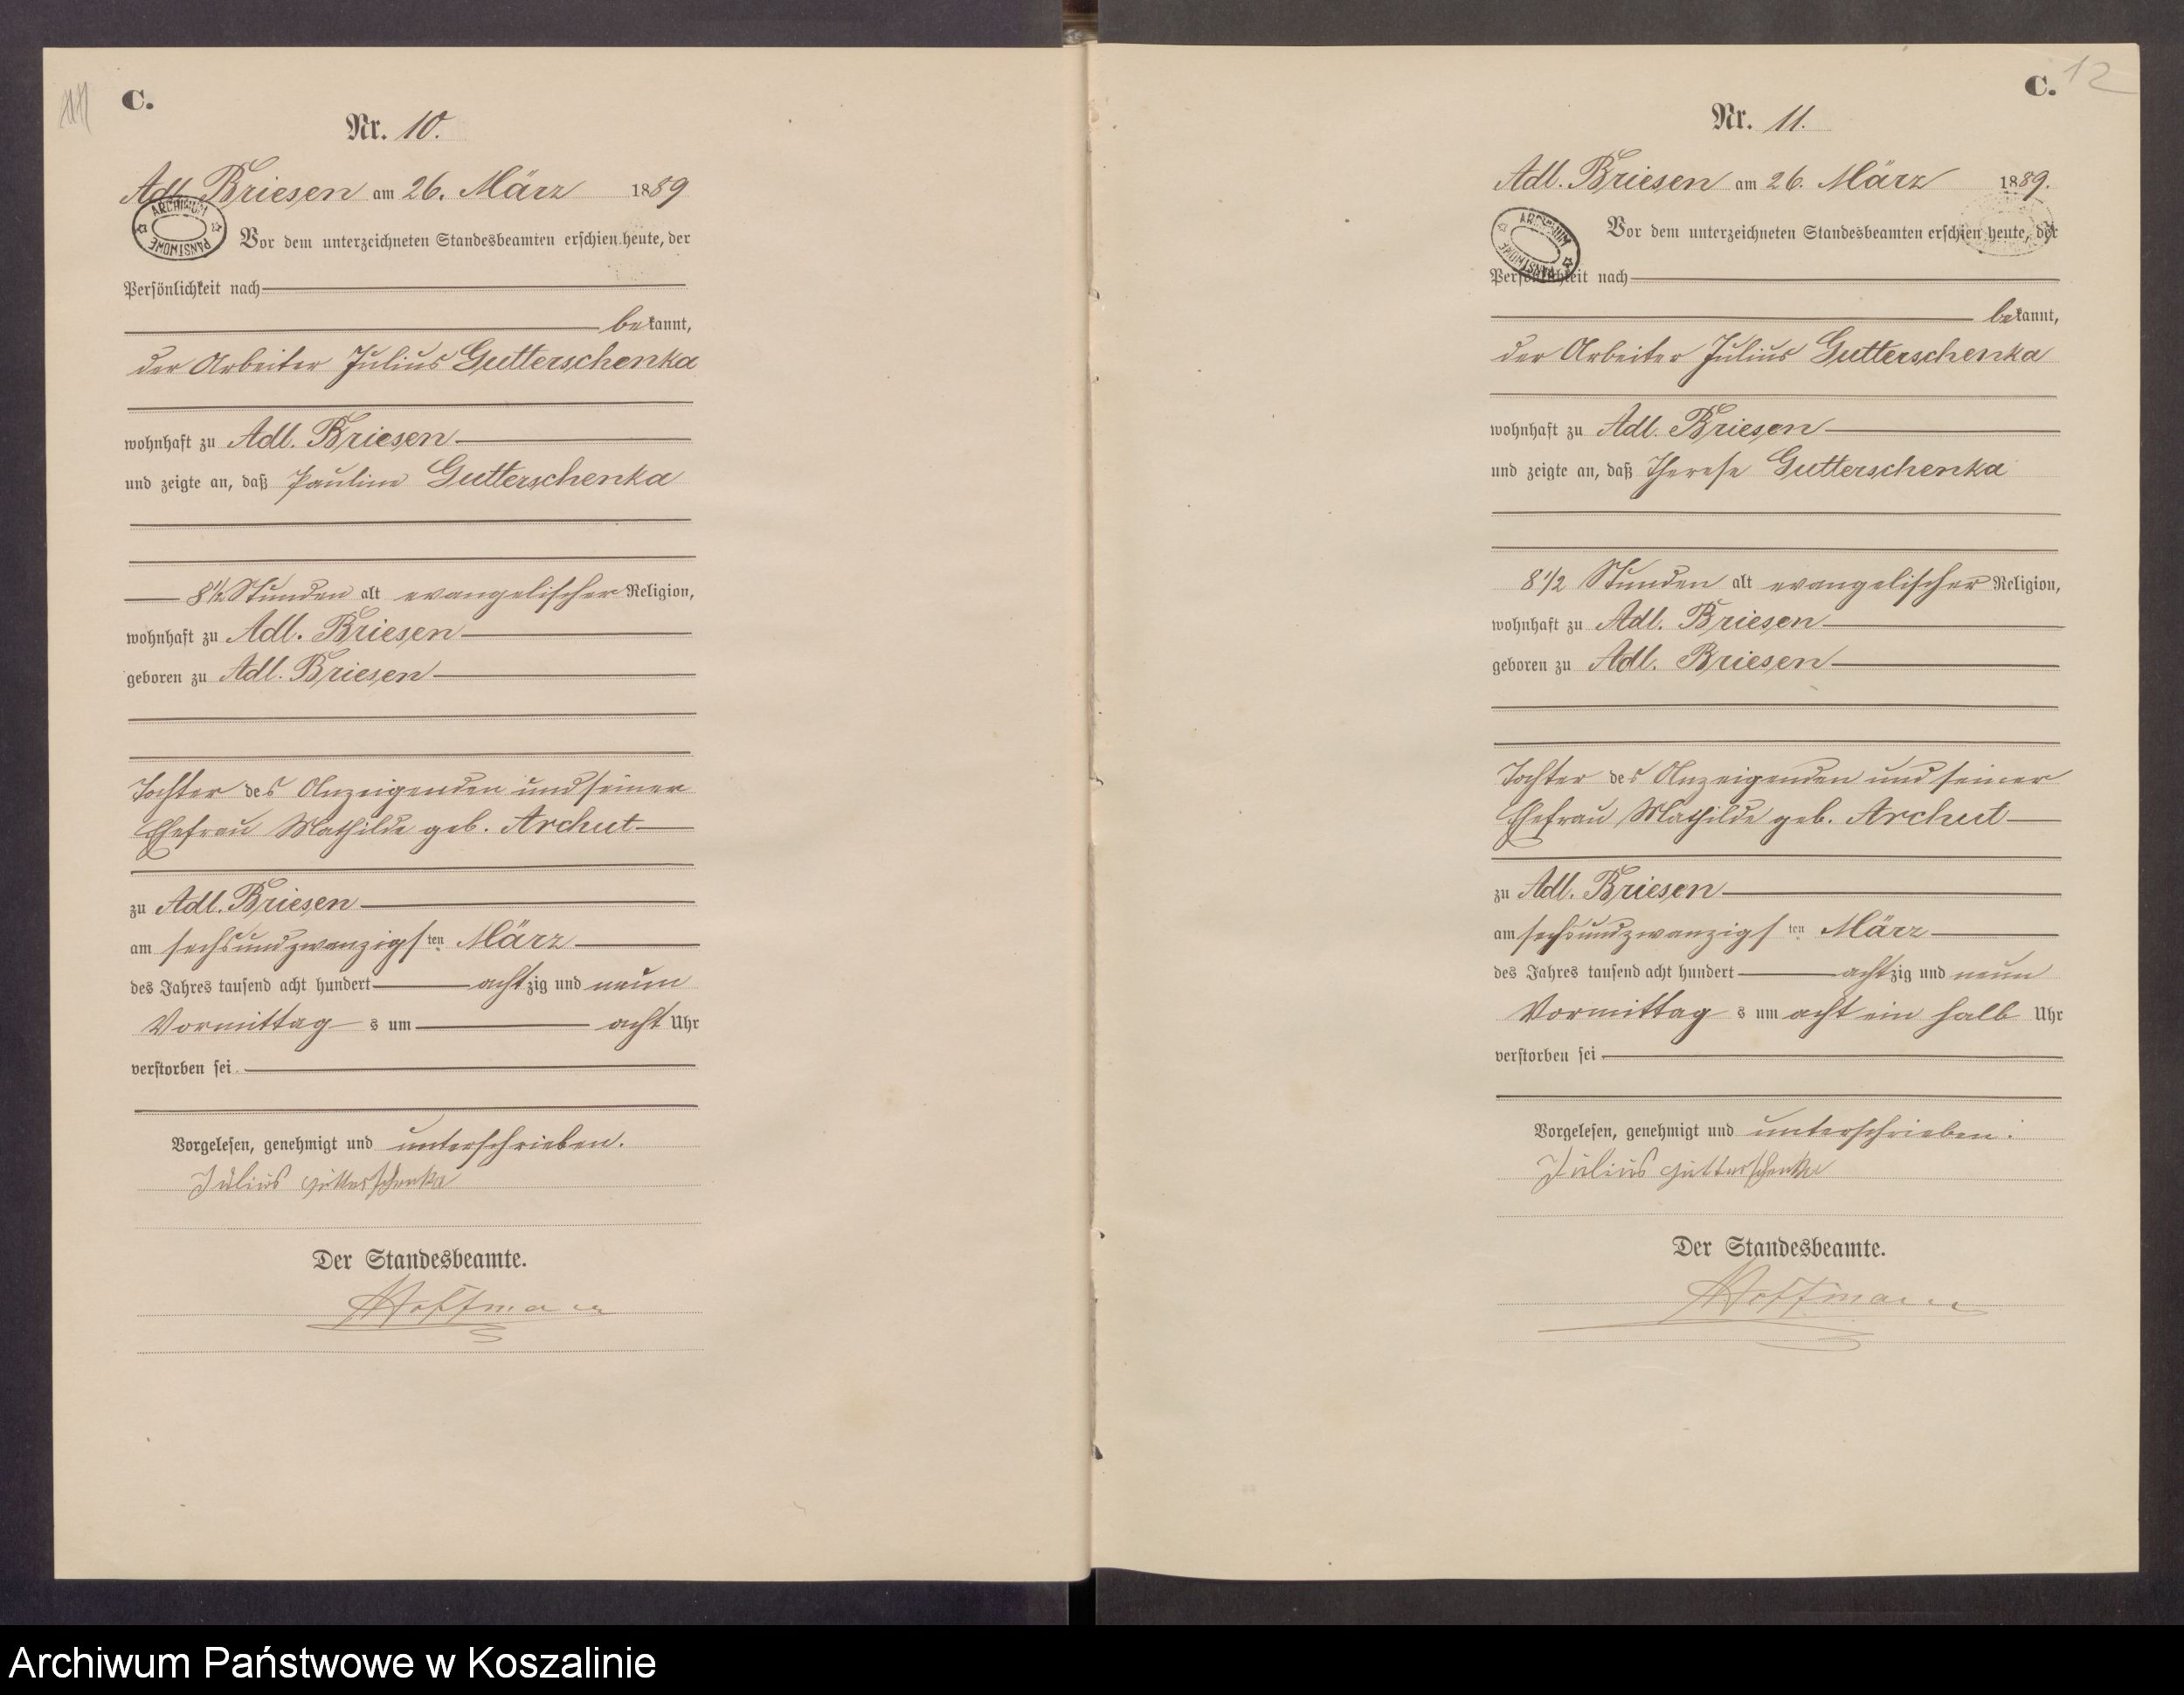 C.
Nr. 10.
Adl. Briesen am 26. März 1889
ARCHIWUM PAŃSTWOWE
Vor dem unterzeichneten Standesbeamten erschien heute, der
Persönlichkeit nach
bekannt,
der Arbeiter Julius Gutterschenka
wohnhaft zu Adl. Briesen
und zeigte an, daß Pauline Gutterschenka
8 1/2 Stunden alt evangelischer Religion,
wohnhaft zu Adl. Briesen
geboren zu Adl. Briesen
Tochter des Anzeigenden und seiner
Ehefrau Mathilde geb. Archut
zu Adl. Briesen
am sechsundzwanzigsten März
des Jahres tausend acht hundert achtzig und neun
Vormittags um acht Uhr
verstorben sei
Vorgelesen, genehmigt und unterschrieben.
Julius Gutterschenka
Der Standesbeamte.
Hoffmann
C. 12
Nr. 11.
Adl. Briesen am 26. März 1889.
ARCHIWUM PAŃSTWOWE
Vor dem unterzeichneten Standesbeamten erschien heute, der
Persönlichkeit nach
bekannt,
der Arbeiter Julius Gutterschenka
wohnhaft zu Adl. Briesen
und zeigte an, daß Therese Gutterschenka
8 1/2 Stunden alt evangelischer Religion,
wohnhaft zu Adl. Briesen
geboren zu Adl. Briesen
Tochter des Anzeigenden und seiner
Ehefrau Mathilde geb. Archut
zu Adl. Briesen
am sechsundzwanzigsten März
des Jahres tausend acht hundert achtzig und neun
Vormittags um acht ein halb Uhr
verstorben sei
Vorgelesen, genehmigt und unterschrieben.
Julius Gutterschenka
Der Standesbeamte.
Hoffmann
Archiwum Państwowe w Koszalinie